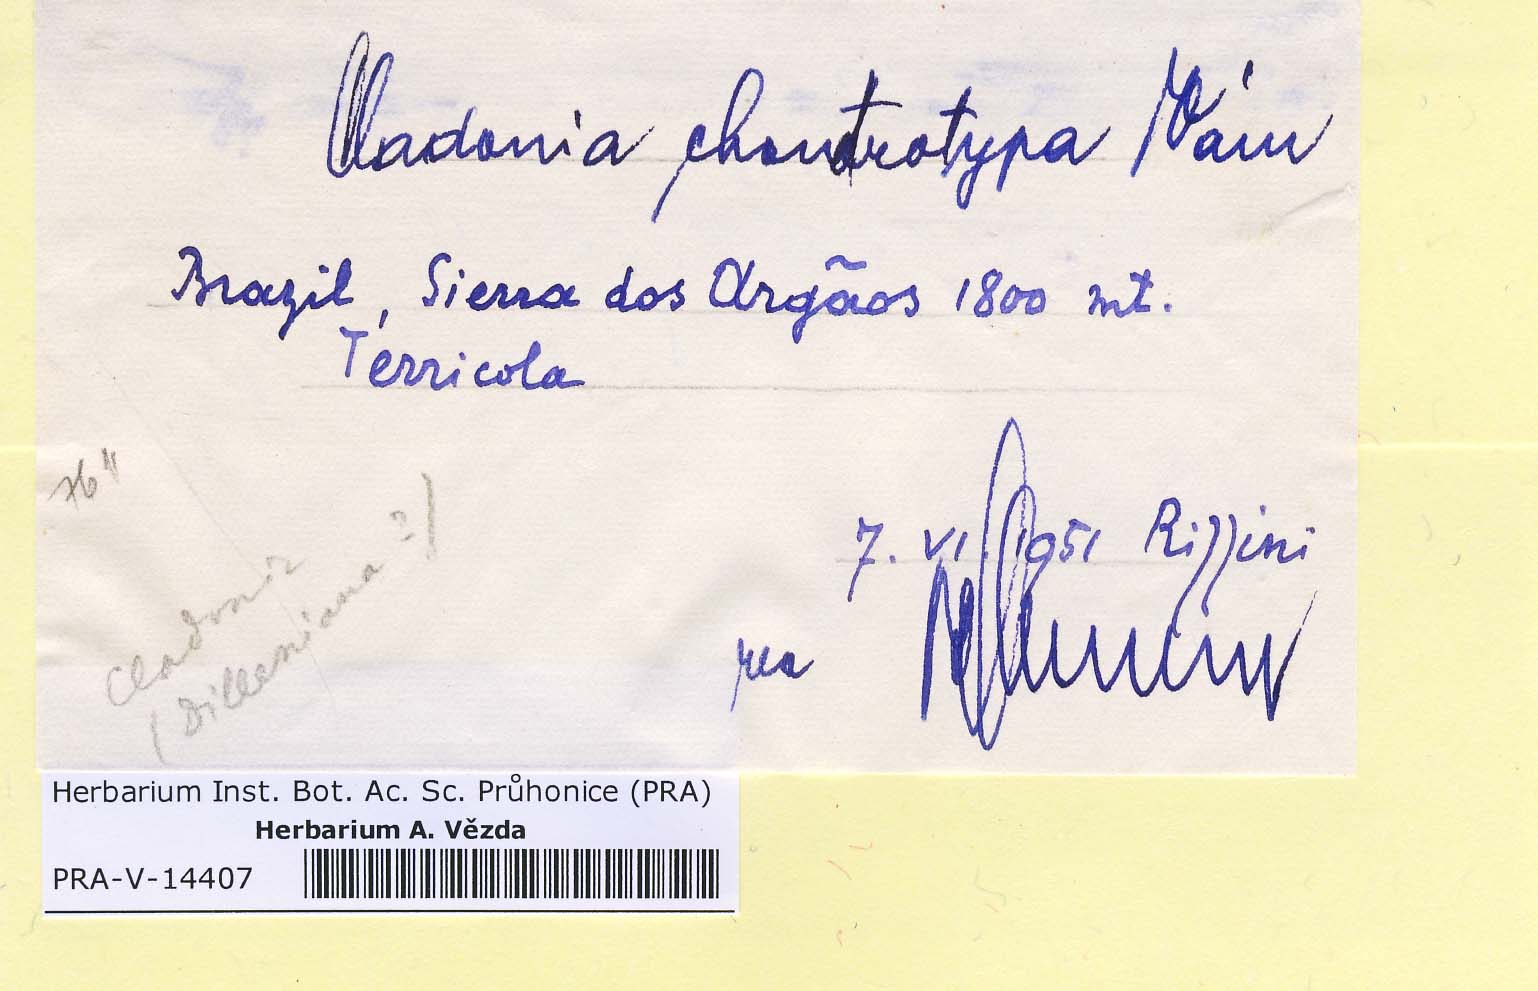 Cladonia chondrotypa Vain
Brazil, Sierra dos Orgãos 1800 mt.
Terricola
7. VI. 1951 Rizzini
Cladonia
(Dilleniana?)
Herbarium Inst. Bot. Ac. Sc. Průhonice (PRA)
Herbarium A. Vězda
PRA-V-14407